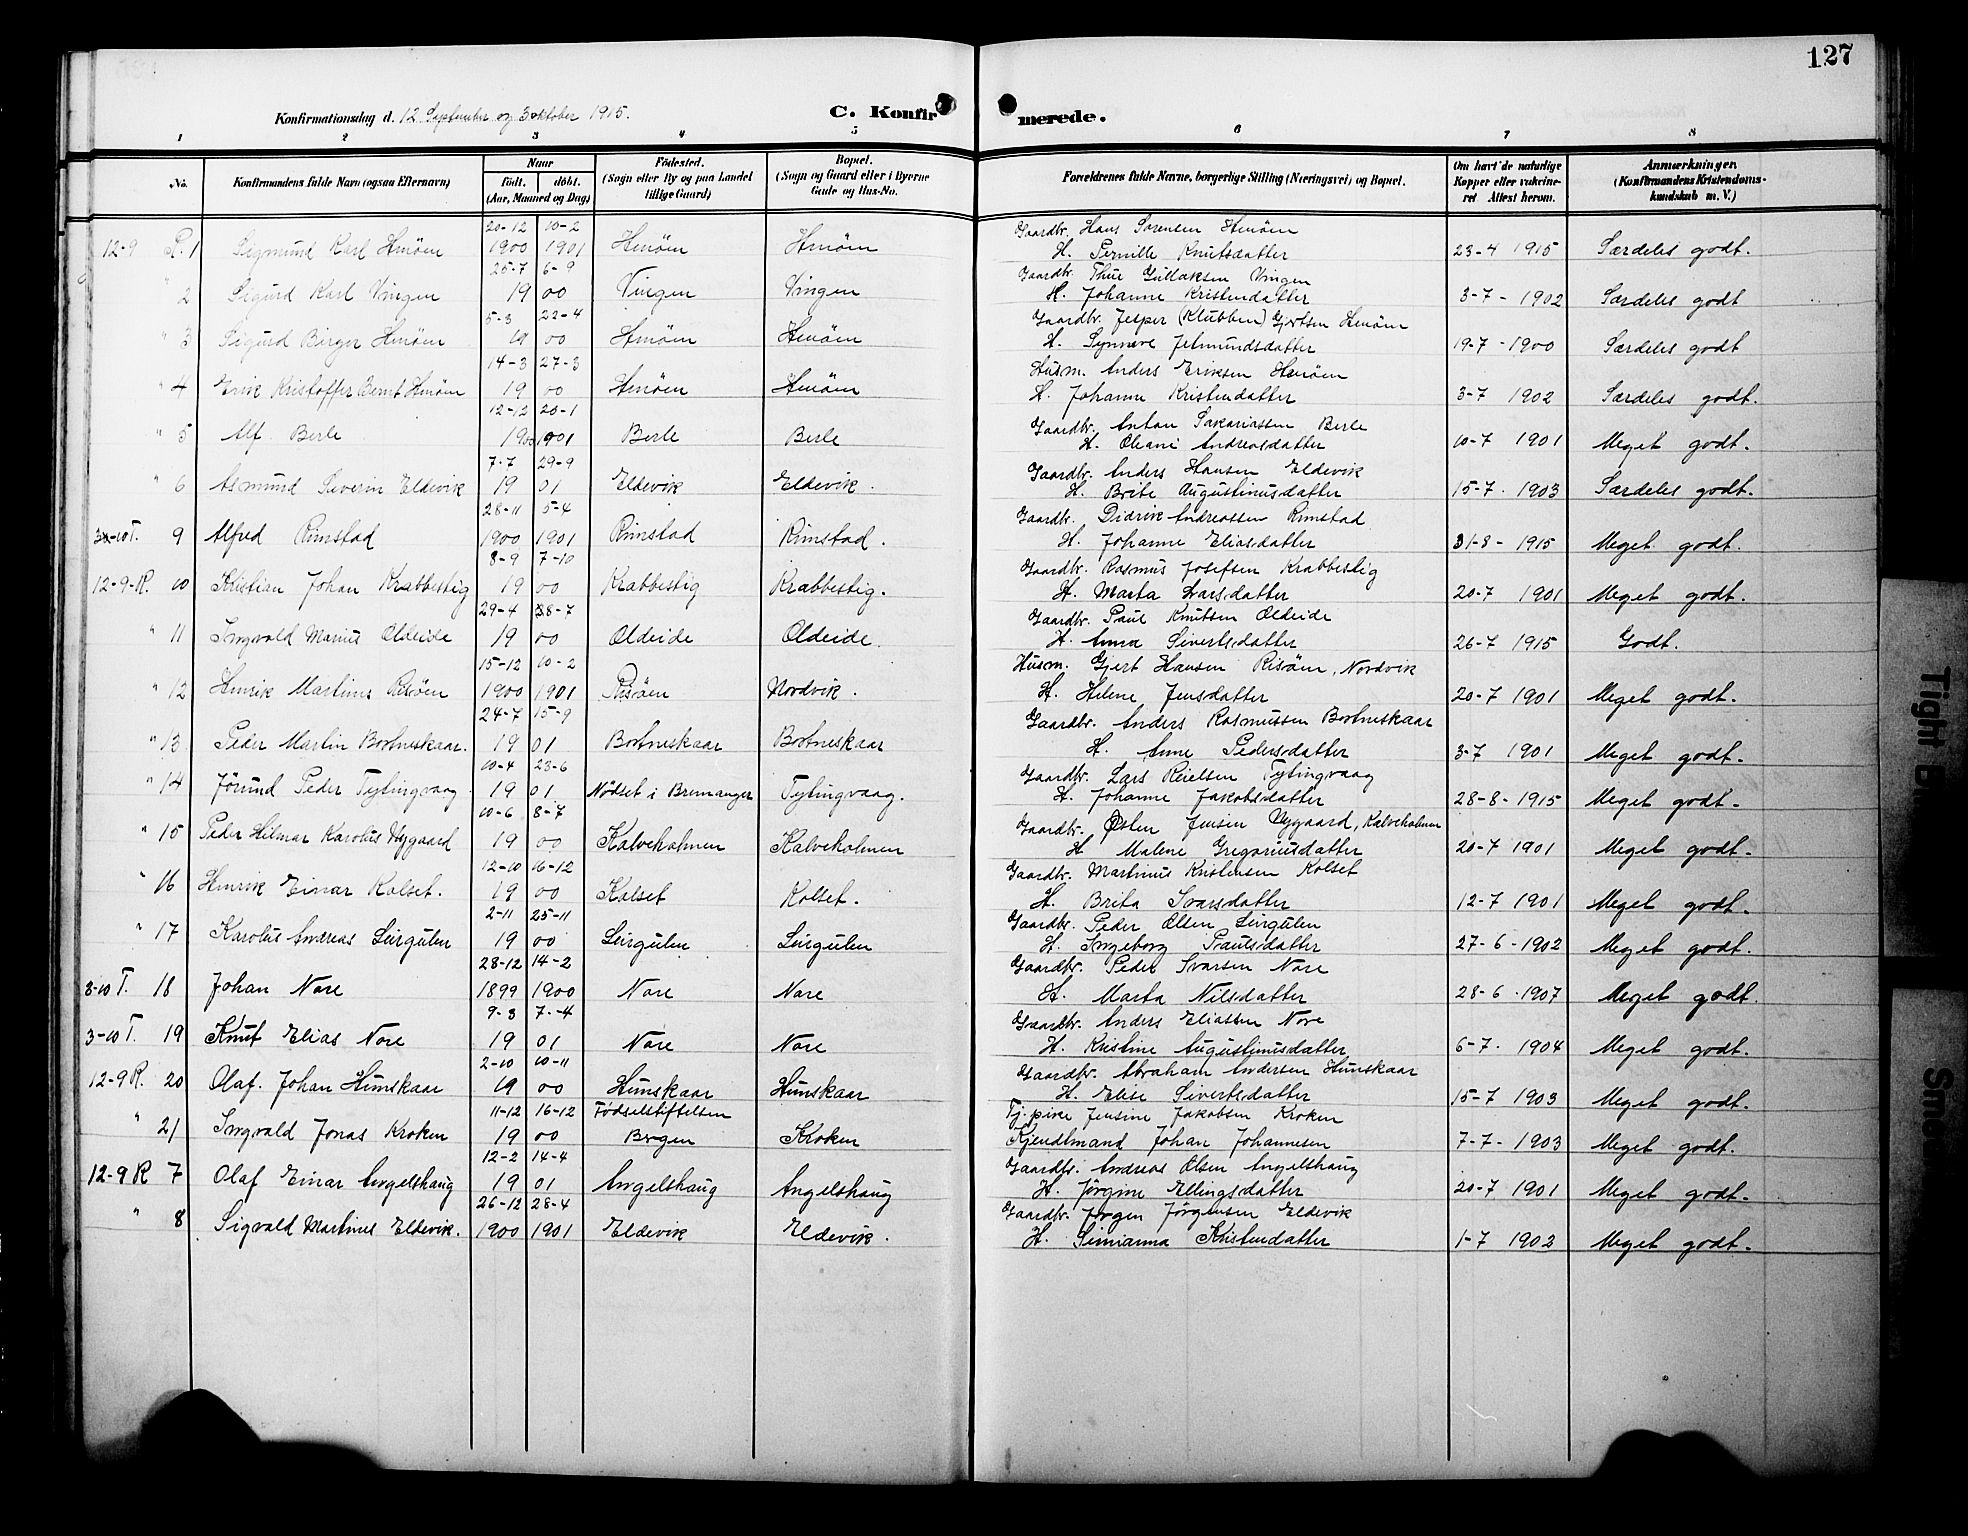 127
Konfirmationsdag d. 12 September og 3 oktober 1915.
C. Konfirmerede.
1 2 3 4 5 6 7 8
No. Konfirmandens fulde Navn (ogsaa Efternavn) Naar født. døbt. (Aar, Maaned og Dag) Fødested. (Sogn eller By og paa Landet tillige Gaard) Bopæl. (Sogn og Gaard eller i Byerne Gade og Hus-No. Forældrenes fulde Navne, borgerlige Stilling (Næringsvei) og Bopæl. Om havt de naturlige Kopper eller vakcineret Attest herom. Anmærkninger (Konfirmandens Kristendomskundskab m. V.)
20-12 10-2 Gaardbr. Hans Sørensen Hinøen
12-9 R. 1 Sigmund Karl Hinøen 1900 1901 Hinøen Hinøen H. Pernille Knutsdatter 23-4 1915 Særdeles godt.
25-7 6-9 Gaardbr. Thue Gullaksen Vingen
" 2 Sigurd Karl Vingen 19 00 Vingen Vingen H. Johanne Kristendatter 3-7-1902 Særdeles godt
5-3 22-4 Gaardbr. Jesper (Klubben) Gjertsen Hinøen
" 3 Sigurd Birger Hinøen 19 00 Hinøen Hinøen H. Synneve Jetmundsdatter 19-7-1900 Særdeles godt
14-3 27-3 Husm. Anders Eriksen Hinøen
" 4 Erik Kristoffer Bernt Hinøen 19 00 Hinøen Hinøen H. Johanne Kristendatter 3-7 1902 Særdeles godt.
12-12 20-1 Gaardbr. Anton Sakariassen Berle
" 5 Alf Berle 1900 1901 Berle Berle H. Oleane Andreasdatter 10-7 1901 Meget godt.
7-7 29-9 Gaardbr. Anders Hansen Eldevik
" 6 Asmund Severin Eldevik 19 01 Eldevik Eldevik. H. Brite Augustinusdatter 15-7. 1903 Særdeles godt.
28-11 5-4 Gaardbr. Didrik Andreassen Rimstad
3-10 T. 9 Alfred Rimstad 1900 1901 Rimstad Rimstad. H. Johanne Eliasdatter 31-8-1915 Meget godt.
8-9 7-10 Gaardbr. Rasmus Josefsen Krabbestig
12-9-R. 10 Kristian Johan Krabbestig 19 00 Krabbestig Krabbestig. H. Marta Larsdatter 20-7 1901 Meget godt.
29-4 8-7 Gaardbr. Paul Knutsen Oldeide
" 11 Ingvald Marius Oldeide 19 00 Oldeide Oldeide. H. Anna Sivertsdatter 26-7 1915 Godt.
15-12 10-2 Husm. Gjert Hansen Risøen, Nordvik
" 12 Henrik Martinus Risøen 1900 1901 Risøen Nordvik. H. Helene Jensdatter 20-7 1901 Meget godt.
24-7 15-9 Gaardbr. Anders Rasmussen Bortneskaar
" 13 Peder Martin Bortneskaar. 19 01 Bortneskaar Bortneskaar H. Anne Pedersdatter 3-7 1901 Meget godt.
10-4 23-6 Gaardbr. Lars Reielsen Tytingvaag
" 14 Jørund Peder Tytingvaag 19 01 Nødset i Bremanger Tytingvaag. H. Johanne Jakobsdatter 28-8-1915 Meget godt.
10-6 8-7 Gaardbr. Østen Jensen Nygaard, Kalveholmen
" 15 Peder Hilmar Karolus Nygaard 19 00 Kalveholmen Kalveholmen H. Malene Gregoriusdatter 20-7 1901 Meget godt.
12-10 16-12 Gaardbr. Martinus Kristensen Kolset
" 16 Henrik Einar Kolset. 19 00 Kolset Kolset. H. Brita Ivarsdatter 12-7 1901 Meget godt.
2-11 25-11 Gaardbr. Peder Olsen Leirgulen
" 17 Karolus Andreas Leirgulen 19 00 Leirgulen Leirgulen H. Ingeborg Paulsdatter 27-6-1902 Meget godt.
28-12 14-2 Gaardbr. Peder Ivarsen Nore
3-10 T. 18 Johan Nore 1899 1900 Nore Nore H. Marta Nilsdatter 28-6-1907 Meget godt.
9-3 7-4 Gaardbr. Anders Eliassen Nore
3-10 T 19 Knut Elias Nore 19 01 Nore Nore H. Kristine Augustinusdatter 6-7. 1904 Meget godt.
2-10 10-11 Gaardbr. Abraham Andersen Hunskaar
12-9 R. 20 Olaf Johan Hunskaar 19 00 Hunskaar Hunskaar H. Elise Sivertsdatter 15-7 1903 Meget godt.
11-12 16-12 Fødselstiftelsen Tj. pike Jensine Jakobsen Kroken
" 21 Ingvald Jonas Kroken 19 00 Bergen Kroken Kjendtmand Johan Johannesen 7-7-1903 Meget godt.
12-2 14-4 Gaardbr. Andreas Olsen Angelshaug
12-9 R 7 Olaf Einar Angelshaug 19 01 Angelshaug Angelshaug H. Jørgine Ellingsdatter 20-7 1901 Meget godt.
26-12 28-4 Gaardbr. Jørgen Jørgensen Eldevik
" 8 Sigvald Martinus Eldevik. 1900 1901 Eldevik Eldevik. H. Simianna Kristendatter 1-7 1902 Meget godt.
Tight